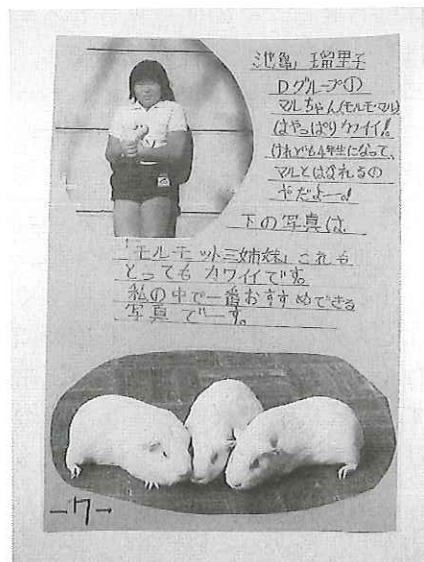 池亀 瑠里子
Dグループの
マルちゃん(モルモ・マル)
はやっぱりカワイイ!
けれども4年生になって、
マルとはなれるの
やだよー。!
下の写真は
「モルモット三姉妹」これも
とってもカワイイです。
私の中で一番おすすめできる
写真でーす。
-17-